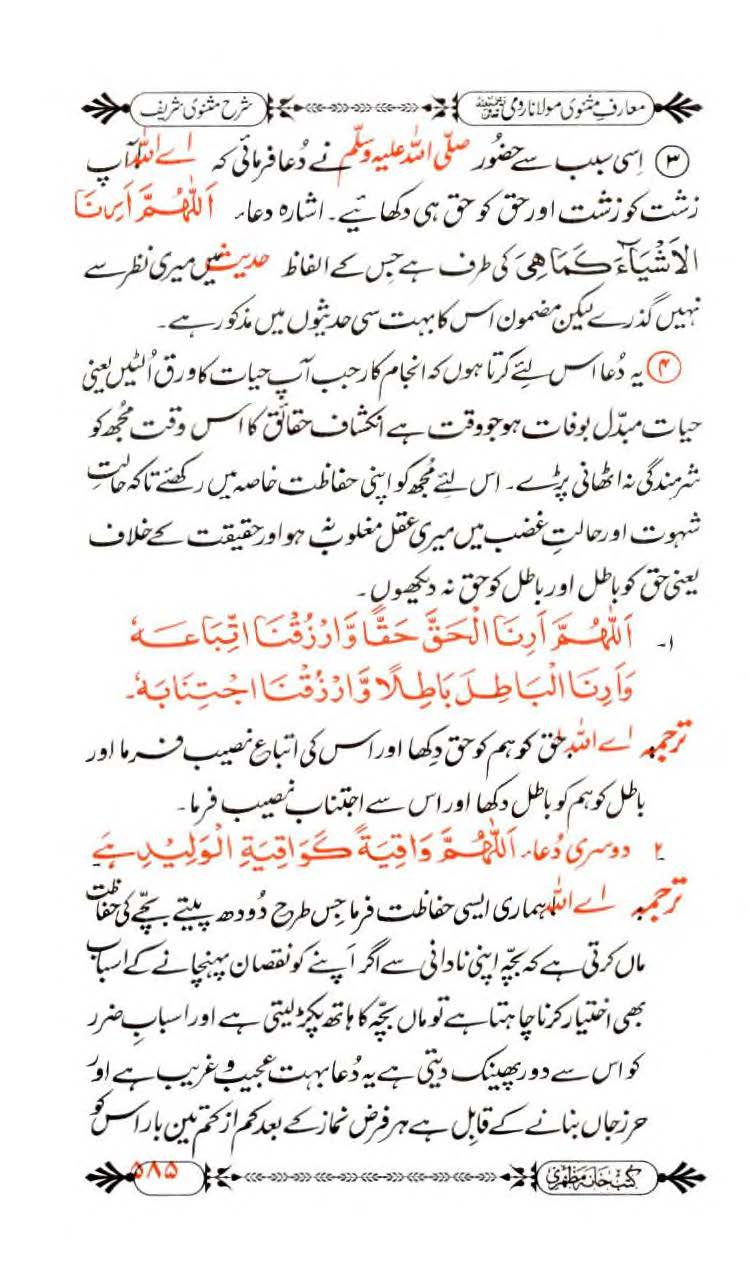 معارفِ مثنوی مولانا رومی شرح مثنوی شریف
③ اِسی سبب سے حضُور صلّی اللہ علیہ وسلّم نے دُعا فرمائی کہ اے اللہ! آپ
زشت کو زشت اور حق کو حق ہی دکھائیے۔ اشارہ دعاء اَللّٰهُمَّ اَرِنَا
الْاَشْيَآءَ كَمَا هِيَ کی طرف ہے جس کے الفاظ حدیث میں میری نظر سے
نہیں گذرے لیکن مضمون اس کا بہت سی حدیثوں میں مذکور ہے۔
④ یہ دُعا اس لئے کرتا ہوں کہ انجام کار جب آپ حیات کا ورق اُلٹیں یعنی
حیات مبدّل بوفات ہو جو وقت ہے انکشاف حقائق کا اس وقت مجُھ کو
شرمندگی نہ اٹھانی پڑے۔ اس لئے مجُھ کو اپنی حفاظت خاصہ میں رکھئے تاکہ حالتِ
شہوت اور حالتِ غضب میں میری عقل مغلوب نہ ہو اور حقیقت کے خلاف
یعنی حق کو باطل اور باطل کو حق نہ دیکھوں۔
۱۔ اَللّٰهُمَّ اَرِنَا الْحَقَّ حَقًّا وَّارْزُقْنَا اتِّبَاعَهٗ
وَاَرِنَا الْبَاطِلَ بَاطِلًا وَّارْزُقْنَا اجْتِنَابَهٗ۔
ترجمہ اے اللہ! حق کو ہم کو حق دِکھا اور اس کی اتباع نصیب فرما اور
باطل کو ہم کو باطل دکھا اور اس سے اجتناب نصیب فرما۔
۲۔ دوسری دُعاء اَللّٰهُمَّ وَاقِيَةً كَوَاقِيَةِ الْوَلِيْدِ ہے
ترجمہ اے اللہ! ہماری ایسی حفاظت فرما جس طرح دُودھ پیتے بچّے کی حفاظت
ماں کرتی ہے کہ بچّہ اپنی نادانی سے اگر اَپنے کو نقصان پہنچانے کے اسباب
بھی اختیار کرنا چاہتا ہے تو ماں بچّہ کا ہاتھ پکڑ لیتی ہے اور اسبابِ ضرر
کو اس سے دور پھینک دیتی ہے یہ دُعا بہت عجیب و غریب ہے اور
حرزِ جاں بنانے کے قابل ہے ہر فرض نماز کے بعد کم از کم تین بار اس کو
کتب خانہ مظہری ۵۸۵